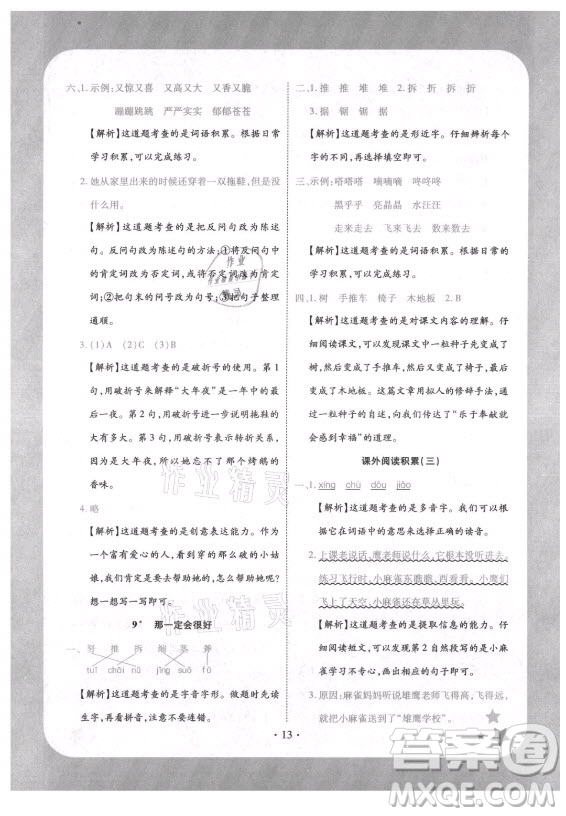 六、1. 示例:又惊又喜 又高又大 又香又脆
蹦蹦跳跳 严严实实 郁郁苍苍
【解析】这道题考查的是词语积累。根据日常
学习积累,可以完成练习。
2. 她从家里出来的时候还穿着一双拖鞋,但是没
什么用。
【解析】这道题考查的是把反问句改为陈述
句。反问句改为陈述句的方法:①将反问句中
的肯定词改为否定词,或将否定词改为肯定
词;②把句末的问号改为句号;③把句子整理
通顺。
3. (1)A (2)C (3)B
【解析】这道题考查的是破折号的用法。第1
句,用破折号来解释“大年夜”是一年中的最后
一天。第2句,用破折号来进一步说明拖鞋的
大。第3句,用破折号来表示意思的转折关
系。所以,她没有吃到鹅肉,只是闻到了烤鹅的
香味。
4. 略
【解析】这道题考查的是创意表达能力。作为
一个富有爱心的人,看到那么可怜的小姑
娘,我们总会想,要是去帮助她,怎么帮助她呢?
想一想,写一写即可。
9* 那一定会很好
一、努 推 拆 缩 茎 斧
tuī chāi nǔ jīng suō fǔ
【解析】这道题考查的是字音字形。做题时先读
生字,再看拼音,选择正确的连线即可。
二、1. 推 推 堆 堆 2. 拆 折 折 拆
3. 据 锯 锯 据
【解析】这道题考查的是形近字。仔细辨析每个
字的不同,再选择填空即可。
三、示例:嗒嗒嗒 嘀嘀嘀 咚咚咚
黑乎乎 亮晶晶 水汪汪
走来走去 飞来飞去 数来数去
【解析】这道题考查的是词语积累。根据日常学
习积累,可以完成练习。
四、1. 树 手推车 椅子 木地板 2. B
【解析】这道题考查的是对课文内容的理解。仔
细阅读课文,可以知道课文中的一粒种子先变成了
树,然后变成了手推车,又变成了椅子,最后变
成了木地板。这篇文章通过拟人的修辞手法,通
过一粒种子的成长故事,向我们传达了“乐于奉献就
会感到幸福”的道理。
课外阅读积累(三)
一、1. xíng chù dōu jiāo
【解析】这道题考查的是多音字。我们可以根
据它在词语中的意思来选择正确的读音。
2. 上课老说话,鹰老师说什么,它根本没听进去。
练习飞行时,小麻雀东瞧瞧,西看看。雄鹰们
飞上了天空,小麻雀还在草丛里玩。
【解析】这道题考查的是提取信息的能力。仔
细阅读短文,可以发现第2自然段写的是小麻
雀学习不专心,再画出相应的句子即可。
3. 原因:麻雀妈妈听说雄鹰老师飞得高,飞得快,
就把小麻雀送到了“雄鹰学校”。
· 13 ·
作业精灵
作业精灵
答案圈
MXQE.COM